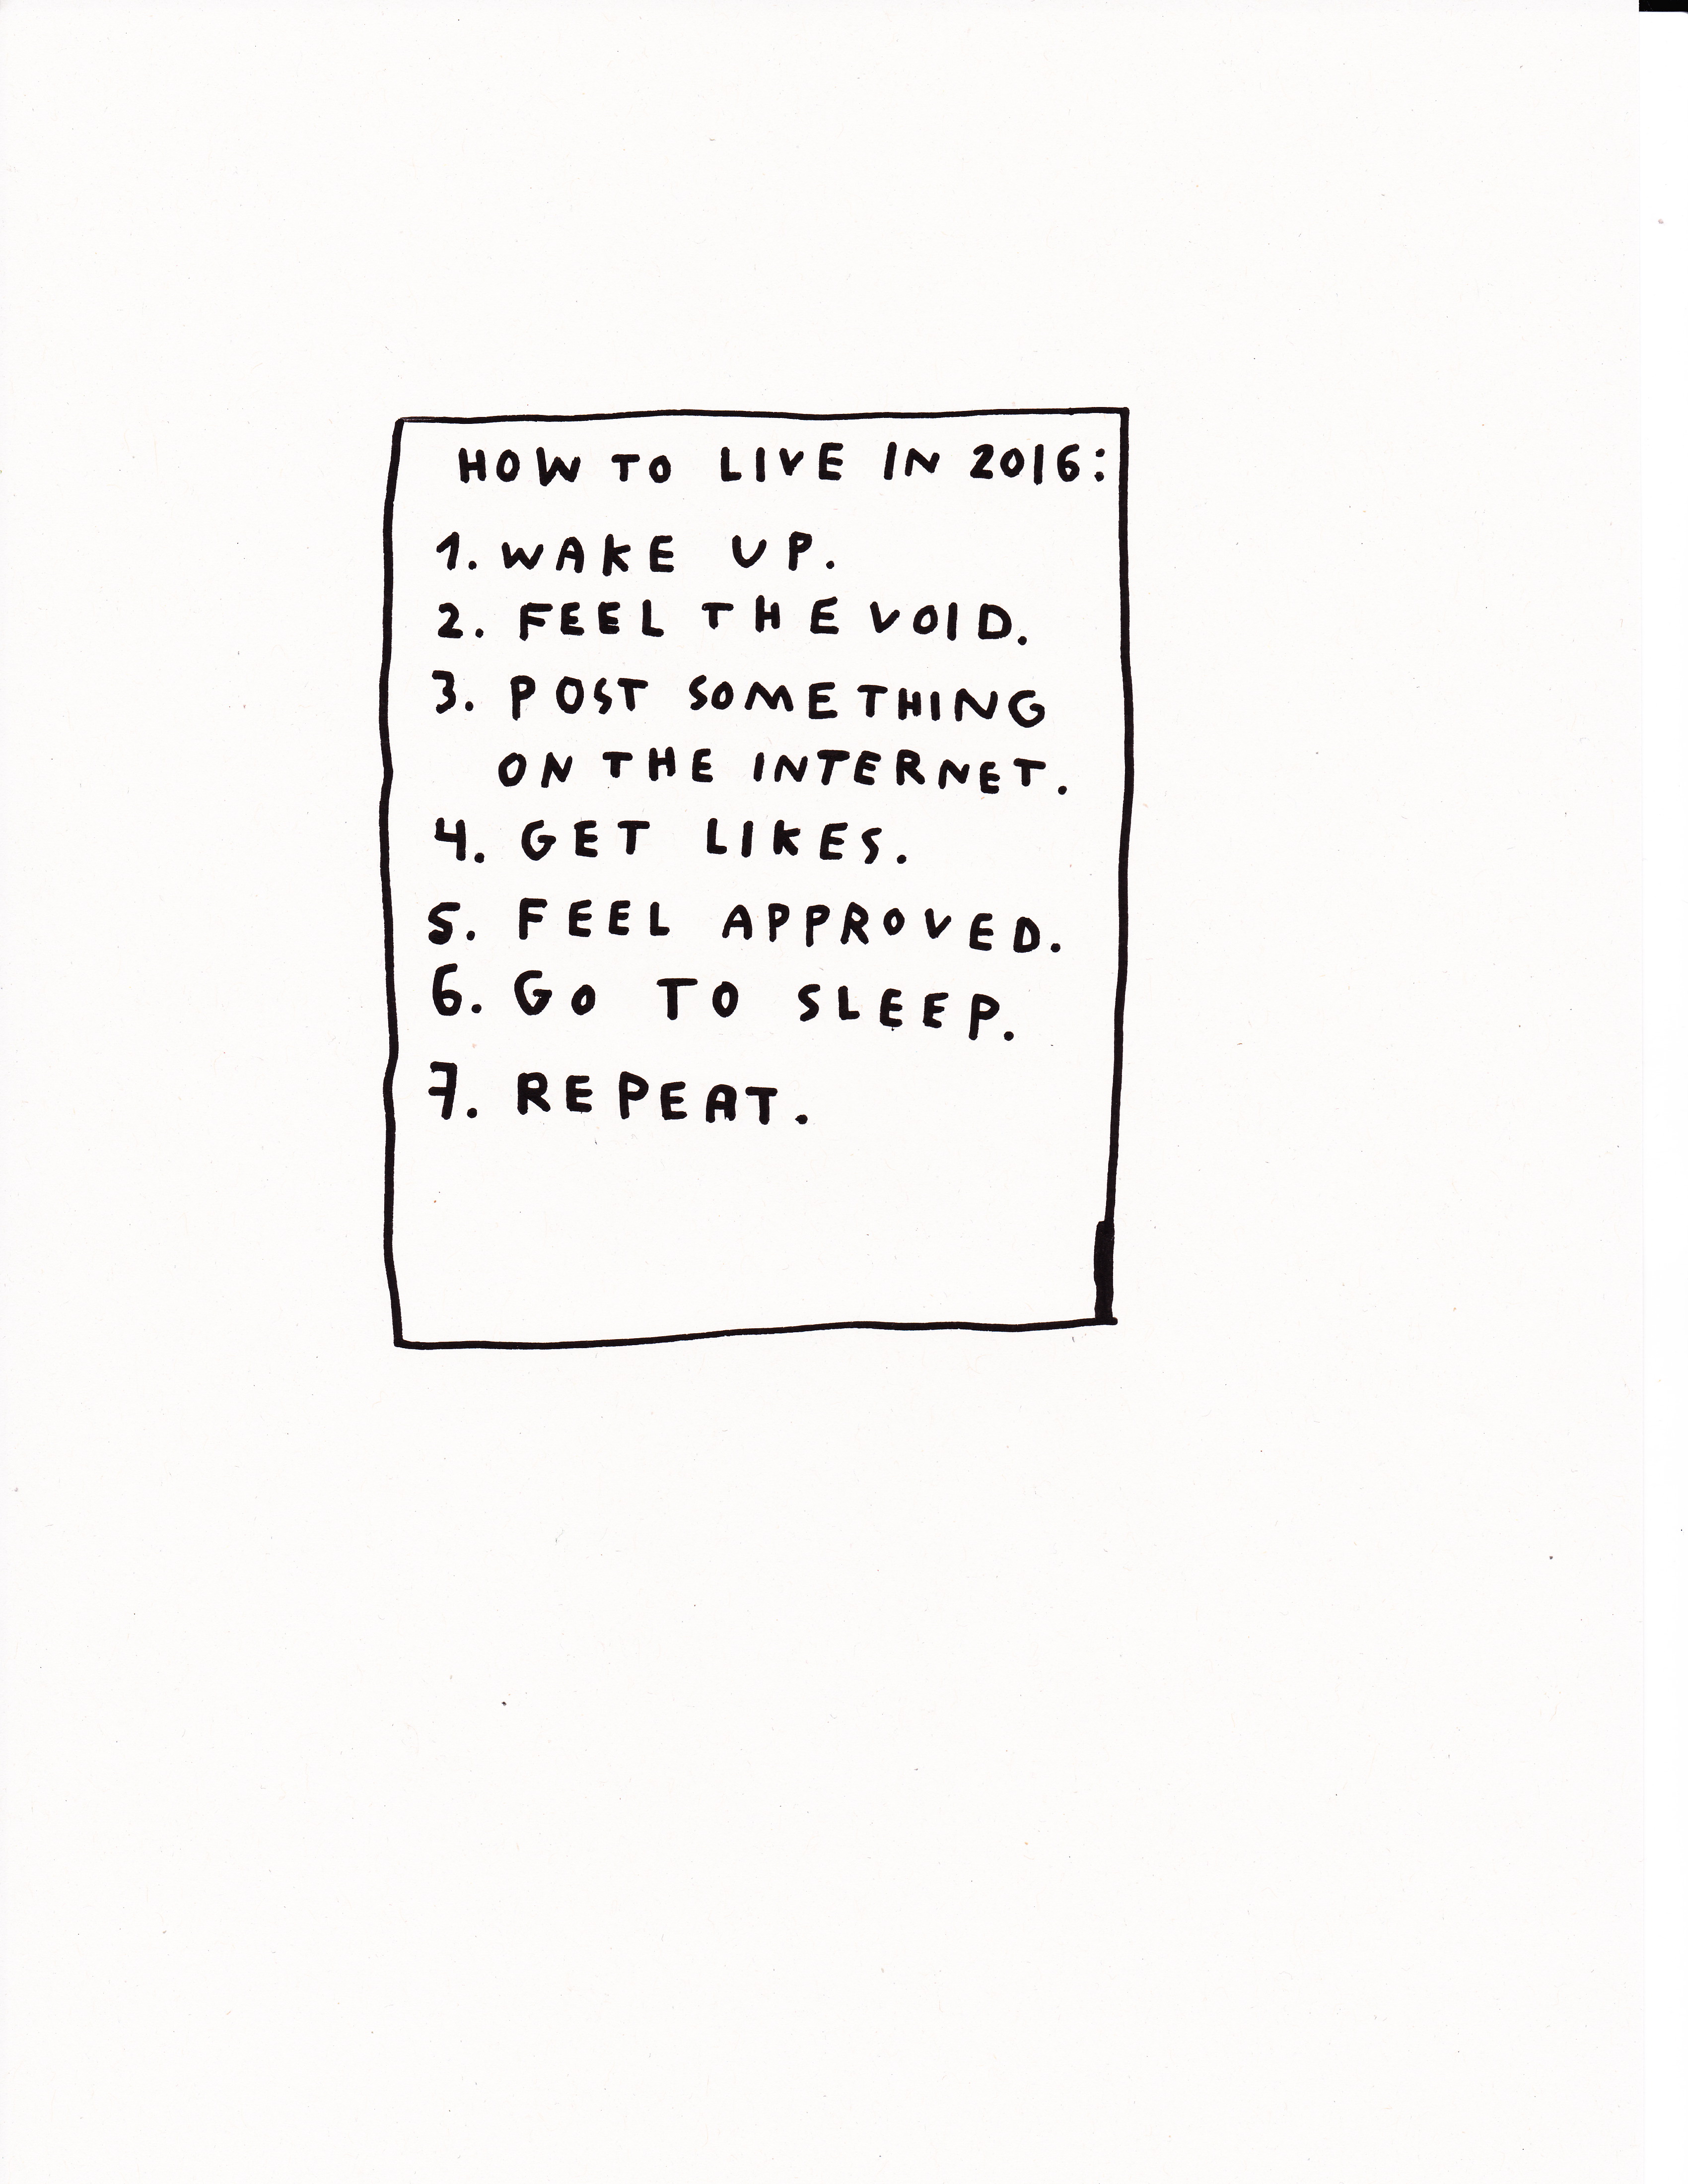 HOW TO LIVE IN 2016:
1. WAKE UP.
2. FEEL THE VOID.
3. POST SOMETHING
ON THE INTERNET.
4. GET LIKES.
5. FEEL APPROVED.
6. GO TO SLEEP.
7. REPEAT.